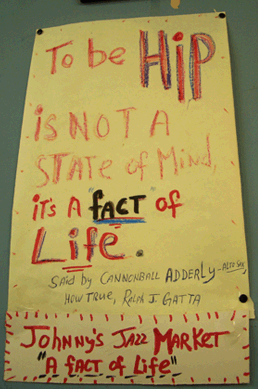 To be HIP
is NOT A
STATE of Mind,
it's A "fACT" of
Life.
Said by CANNONBALL ADDERLY - ALTO SAX
HOW TRUE, RALPH J. GATTA
JOHNNY'S JAZZ MARKET
"A fACT of Life"